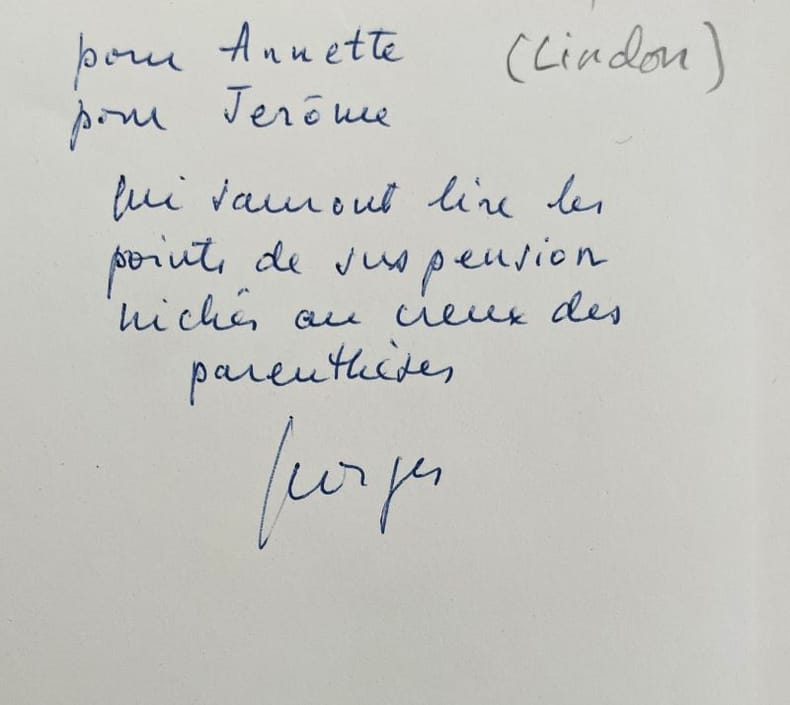 pour Annette (Lindon)
pour Jerôme
qui sauront lire les
points de suspension
nichés au creux des
parenthèses
Georges